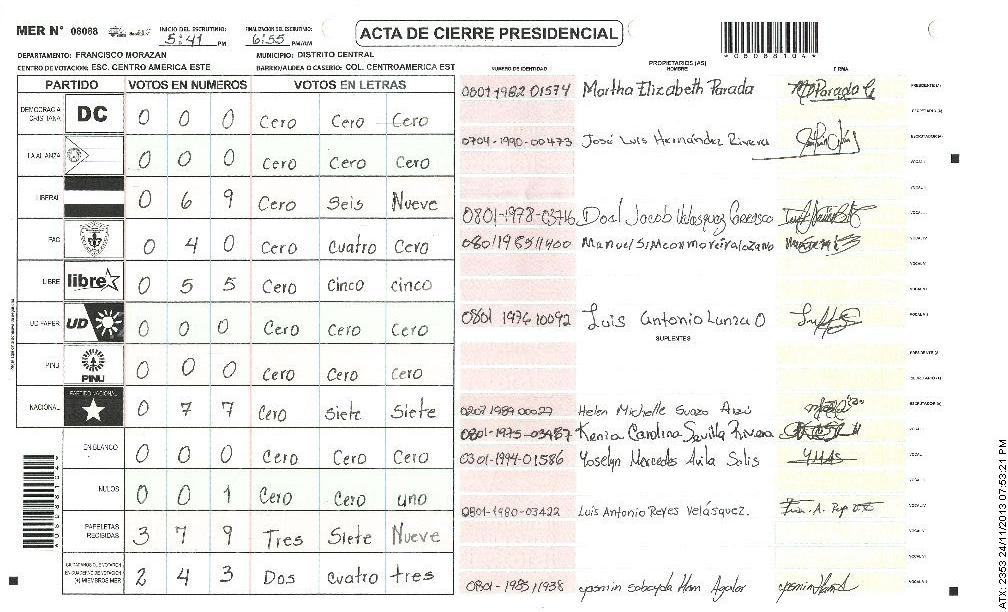 MER N° 08088
INICIO DEL ESCRUTINIO: 5:41 PM
FINALIZACION DEL ESCRUTINIO: 6:55 PM/AM
ACTA DE CIERRE PRESIDENCIAL
*08088104*
DEPARTAMENTO: FRANCISCO MORAZAN
MUNICIPIO: DISTRITO CENTRAL
CENTRO DE VOTACION: ESC. CENTRO AMERICA ESTE
BARRIO/ALDEA O CASERIO: COL. CENTROAMERICA EST
NUMERO DE IDENTIDAD PROPIETARIOS (AS) NOMBRE FIRMA
PARTIDO VOTOS EN NUMEROS VOTOS EN LETRAS
DEMOCRACIA CRISTIANA DC 0 0 0 Cero Cero Cero
LA ALIANZA 0 0 0 Cero Cero Cero
LIBERAL 0 6 9 Cero Seis Nueve
PAC 0 4 0 Cero Cuatro Cero
LIBRE libre 0 5 5 Cero Cinco cinco
UD FAPER UD 0 0 0 Cero Cero Cero
PINU PINU 0 0 0 Cero Cero Cero
NACIONAL PARTIDO NACIONAL 0 7 7 Cero Siete Siete
EN BLANCO 0 0 0 Cero Cero Cero
NULOS 0 0 1 Cero Cero uno
PAPELETAS RECIBIDAS 3 7 9 Tres Siete Nueve
(+) MIEMBROS MER 2 4 3 Dos cuatro tres
0801 1982 01574 Martha Elizabeth Parada PRESIDENTE (A)
SECRETARIO (A)
0704-1990-00473 José Luis Hernández Rivera ESCRUTADOR (A)
VOCAL I
VOCAL II
0801-1978-03716 Jacob Velasquez
Manuel Simeon moreira lozano VOCAL IV
0801 1976 10092 Luis Antonio Lanza O
SUPLENTES
PRESIDENTE (A)
SECRETARIO (A)
Helen Michelle Suazo ESCRUTADOR (A)
0801-1975-03487 Kenia Carolina Sevilla Rivera
0301-1994-01586 Yoselyn Mercedes Avila Solis
0801-1980-03422 Luis Antonio Reyes Velásquez.
ATX-2353 24/11/2013 07:53:21 PM